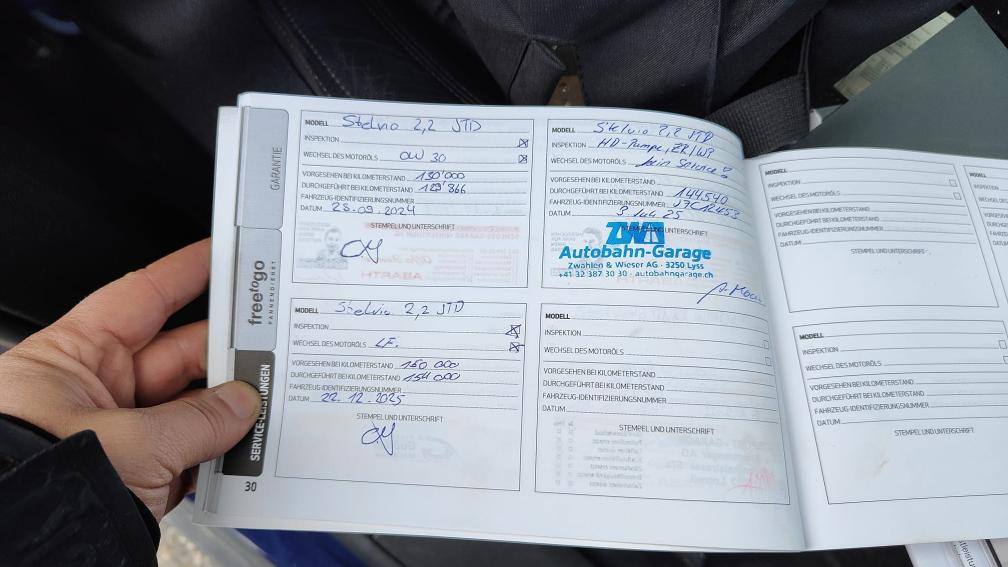 GARANTIE
freetogo
PANNENDIENST
SERVICE-LEISTUNGEN
30
MODELL Stelvio 2,2 JTD
INSPEKTION
WECHSEL DES MOTORÖLS OW 30
VORGESEHEN BEI KILOMETERSTAND 130'000
DURCHGEFÜHRT BEI KILOMETERSTAND 129'866
FAHRZEUG-IDENTIFIZIERUNGSNUMMER
DATUM 25.09.2024
STEMPEL UND UNTERSCHRIFT
MODELL Stelvio 2,2 JTD
INSPEKTION HD-Pumpe, ZR/WP
WECHSEL DES MOTORÖLS kein Service!
VORGESEHEN BEI KILOMETERSTAND
DURCHGEFÜHRT BEI KILOMETERSTAND 144540
FAHRZEUG-IDENTIFIZIERUNGSNUMMER J7C12453
DATUM 3 Juli 25
STEMPEL UND UNTERSCHRIFT
ZWA
Autobahn-Garage
Zwahlen & Wieser AG · 3250 Lyss
+41 32 387 30 30 · autobahngarage.ch
MODELL Stelvio 2,2 JTD
INSPEKTION
WECHSEL DES MOTORÖLS LF.
VORGESEHEN BEI KILOMETERSTAND 150 000
DURCHGEFÜHRT BEI KILOMETERSTAND 154 000
FAHRZEUG-IDENTIFIZIERUNGSNUMMER
DATUM 22.12.2025
STEMPEL UND UNTERSCHRIFT
MODELL
INSPEKTION
WECHSEL DES MOTORÖLS
VORGESEHEN BEI KILOMETERSTAND
DURCHGEFÜHRT BEI KILOMETERSTAND
FAHRZEUG-IDENTIFIZIERUNGSNUMMER
DATUM
STEMPEL UND UNTERSCHRIFT
MODELL
INSPEKTION
WECHSEL DES MOTORÖLS
VORGESEHEN BEI KILOMETERSTAND
DURCHGEFÜHRT BEI KILOMETERSTAND
FAHRZEUG-IDENTIFIZIERUNGSNUMMER
DATUM
STEMPEL UND UNTERSCHRIFT
MODELL
INSPEKTION
WECHSEL DES MOTORÖLS
VORGESEHEN BEI KILOMETERSTAND
DURCHGEFÜHRT BEI KILOMETERSTAND
FAHRZEUG-IDENTIFIZIERUNGSNUMMER
DATUM
STEMPEL UND UNTERSCHRIFT